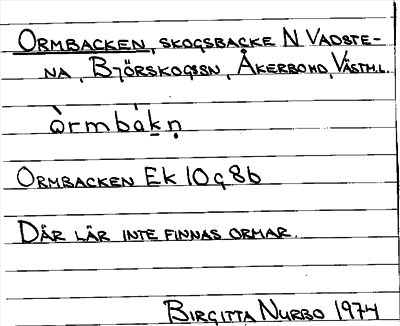 ORMBACKEN, SKOGSBACKE N VADSTE-
NA, BJÖRSKOGSSN, ÅKERBOHD, VÄSTML.
òrmbákṇ
ORMBACKEN EK 10G8b
DÄR LÄR INTE FINNAS ORMAR.
BIRGITTA NURBO 1974